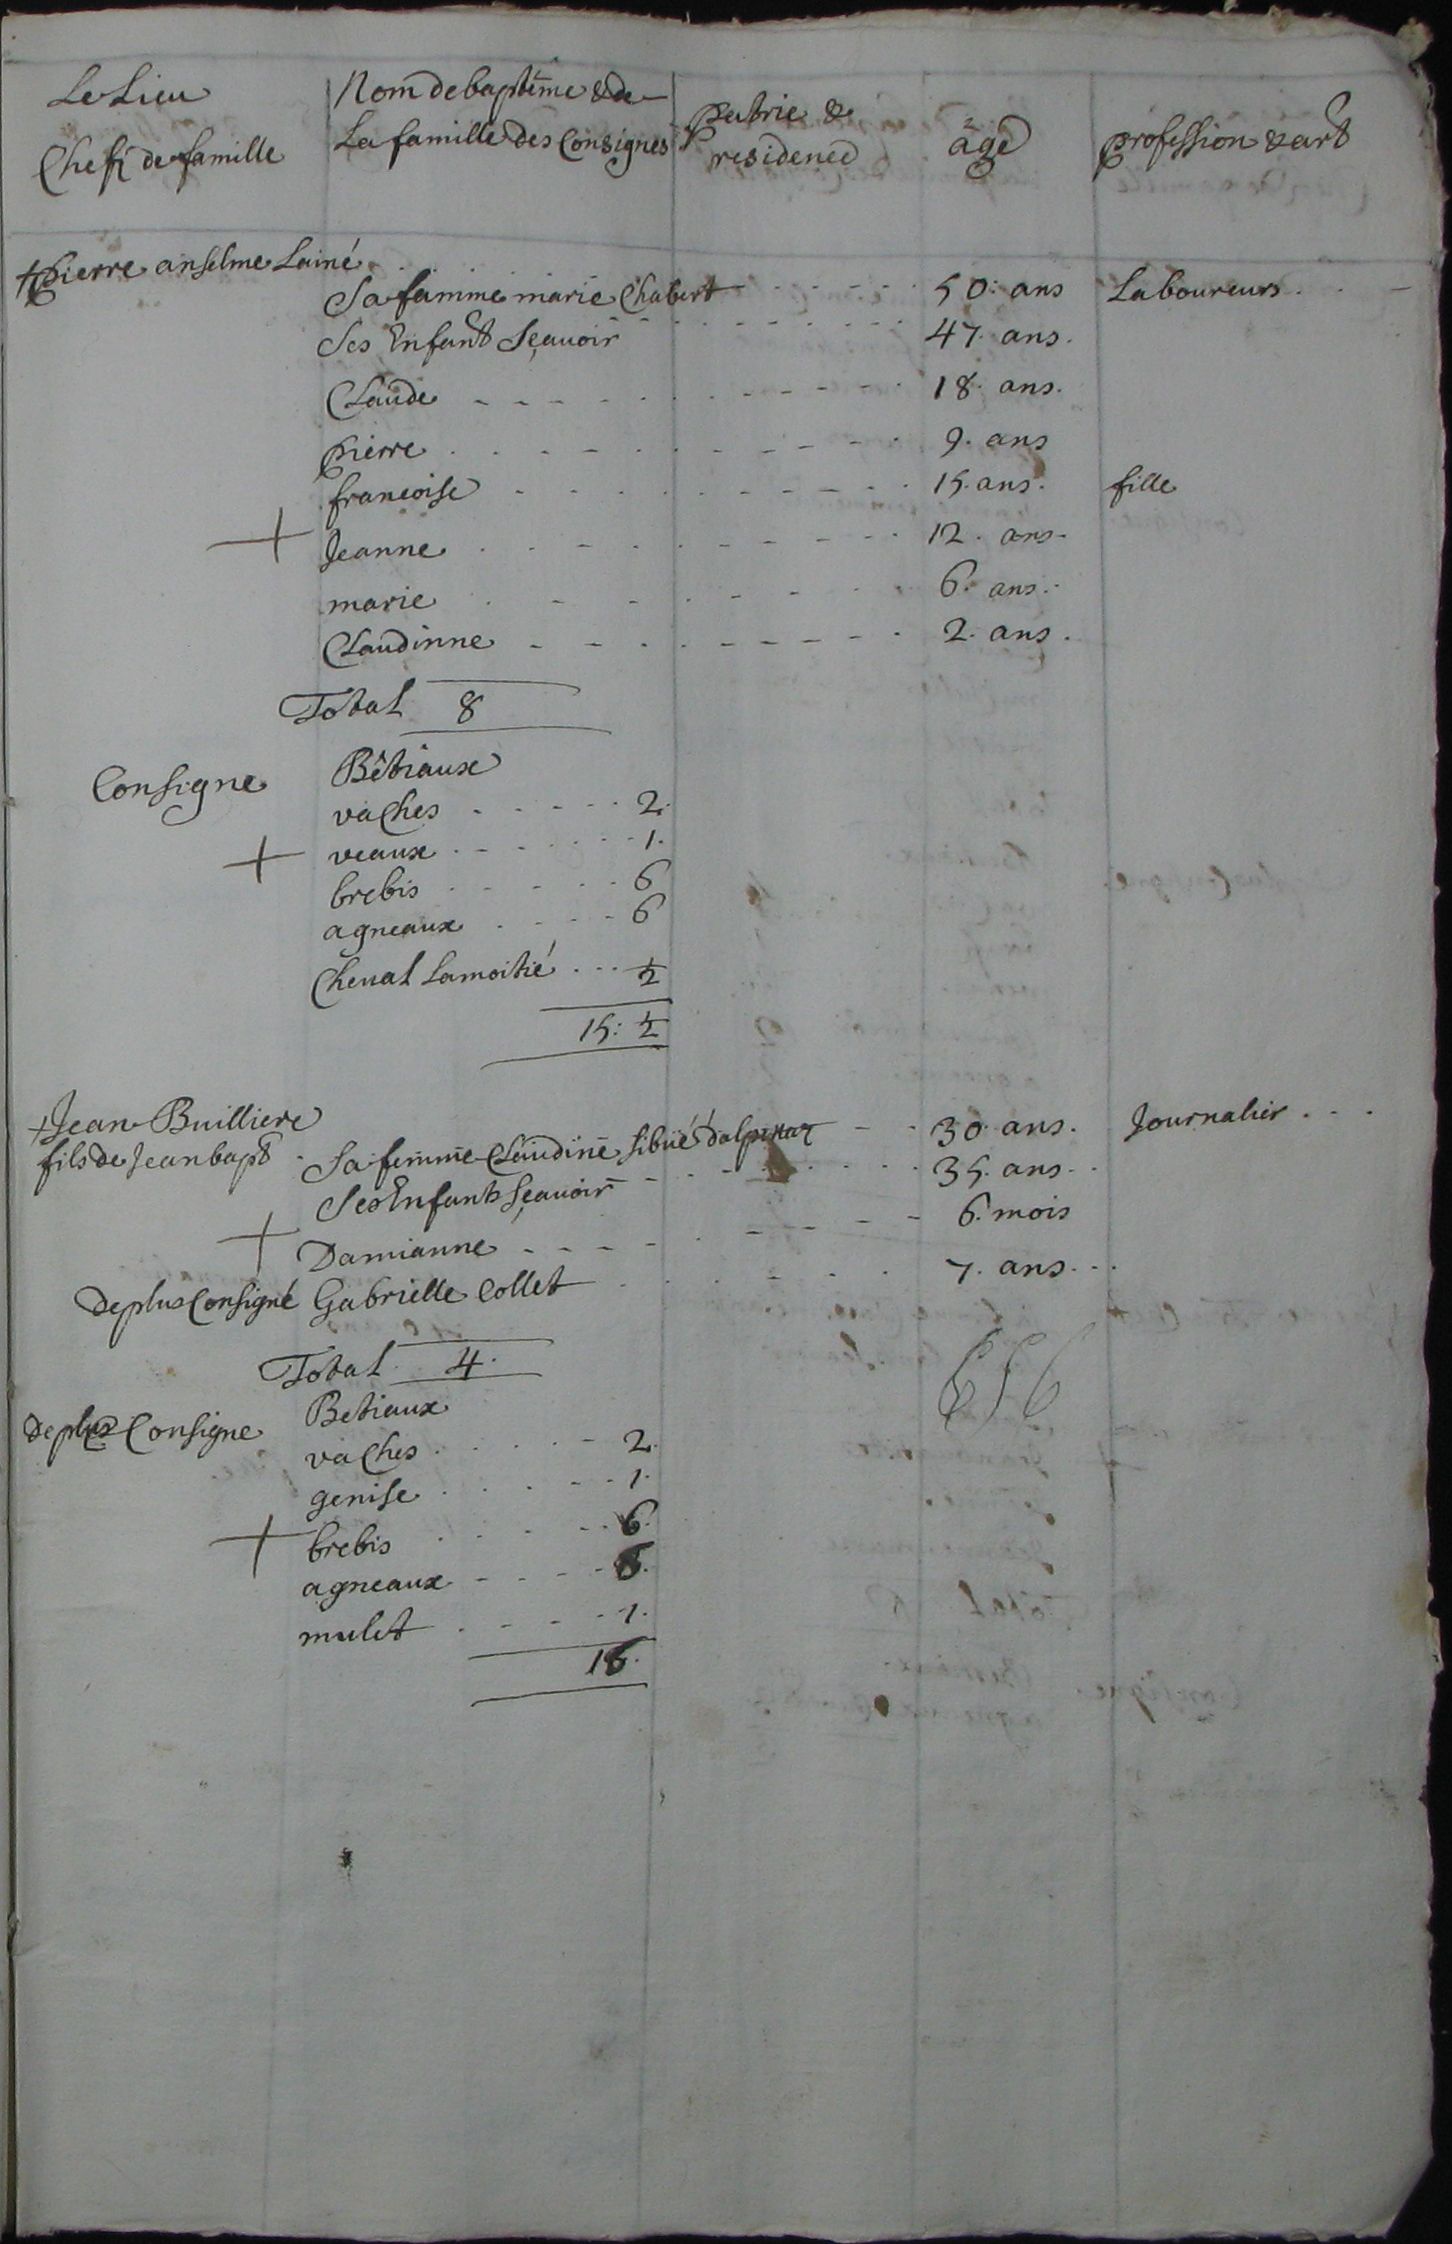 Le Lieu
Chefz de famille
Nom de baptême & de
La famille des Consignés
patrie &
residence
âge
profession & art
+ pierre anselme Lainé
50. ans Laboureurs
Sa famme marie Chabert 47. ans.
Ses Enfant Sçauoir
Claude 18. ans.
pierre 9. ans
francoise 15. ans. fille
+ Jeanne 12. ans.
marie 6. ans.
Claudinne 2. ans.
Total 8
Consigne Bêtiaux
vaches 2.
+ veaux 1.
brebis 6
agneaux 6
Cheual Lamoitié 1/2
15: 1/2
+ Jean Builliere
fils de Jean bapt 30. ans. Journalier
Sa femme Claudine Sibué 35. ans.
Ses Enfants Sçauoir
+ Damianne 6. mois
De plus Consigné Gabrielle Collet 7. ans.
Total 4.
De plus Consigne Betiaux
vaches 2.
genise 1.
+ brebis 6.
agneaux
mulet 1.